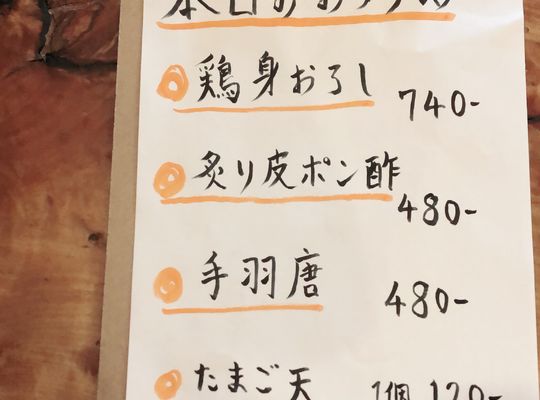 本日のおすすめ
鶏身おろし 740-
炙り皮ポン酢 480-
手羽唐 480-
たまご天 1個 120-